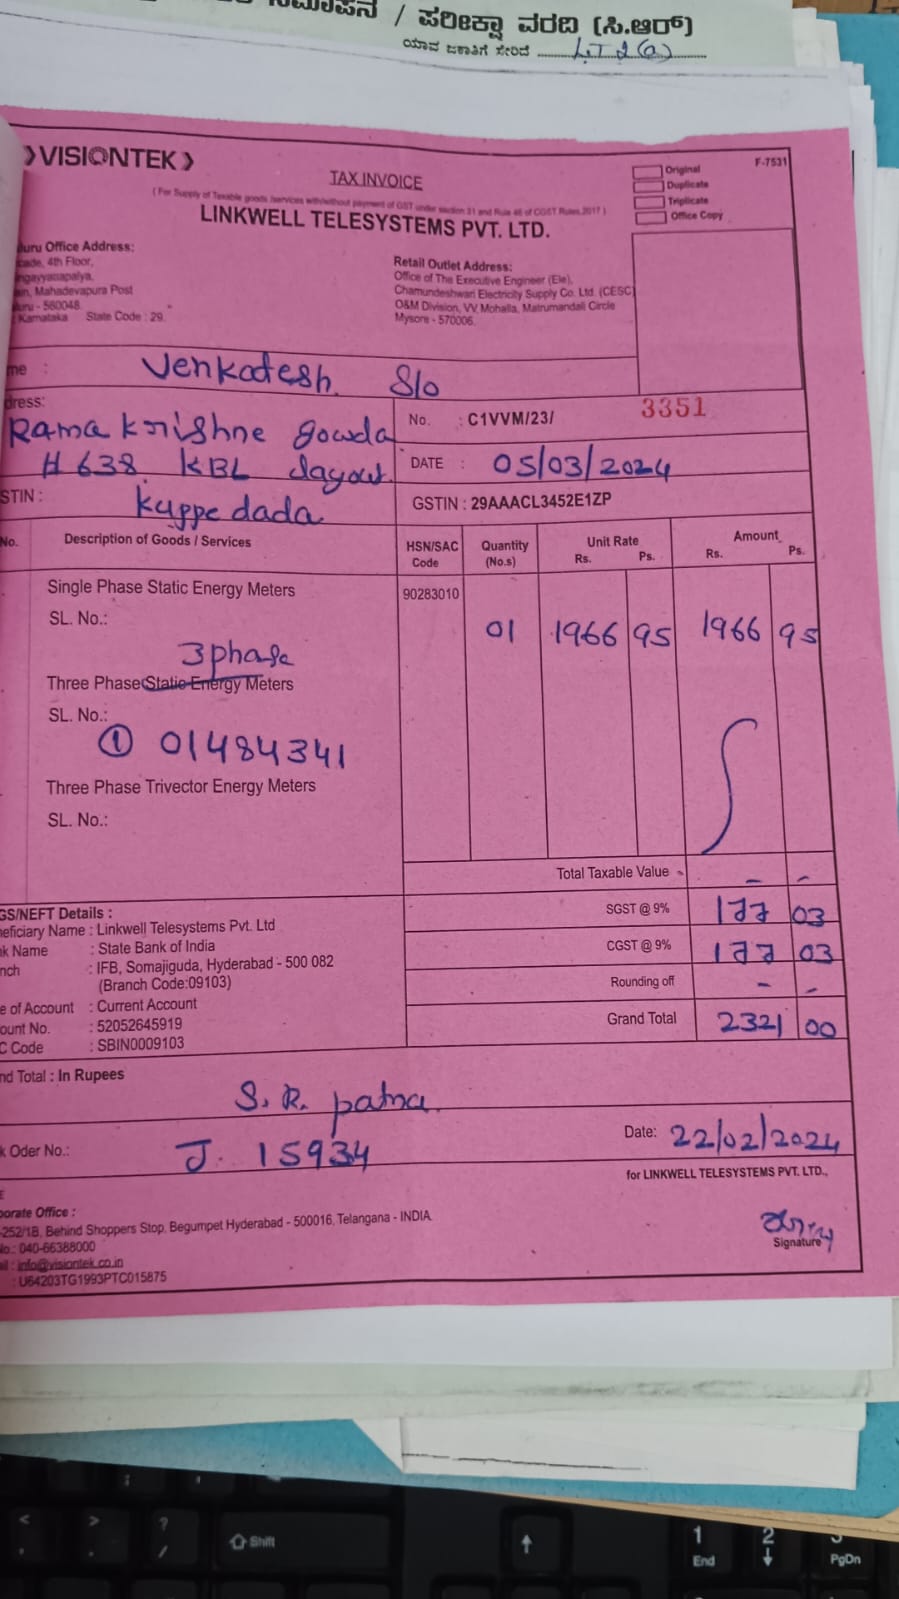 ಪರೀಕ್ಷಾ ವರದಿ (ಸಿ.ಆರ್)
ಯಾವ ಜಕಾತಿಗೆ ಸೇರಿದೆ LT 2(a)
VISIONTEK
F-7531
TAX INVOICE
Original
Duplicate
Triplicate
Office Copy
(For Supply of Taxable goods /services with/without payment of GST under section 31 and Rule 46 of CGST Rules, 2017)
LINKWELL TELESYSTEMS PVT. LTD.
Office Address:
4th Floor,
Mahadevapura Post
- 560048.
Karnataka State Code : 29.
Retail Outlet Address:
Office of The Executive Engineer (Ele),
Chamundeshwari Electricity Supply Co. Ltd. (CESC)
O&M Division, VV Mohalla, Matrumandali Circle
Mysore - 570006.
Venkatesh. S/o
Rama Krishne gowda
# 638. KBL layout.
Kuppe dada
No. : C1VVM/23/ 3351
DATE : 05/03/2024
GSTIN : 29AAACL3452E1ZP
No. Description of Goods / Services HSN/SAC Code Quantity (No.s) Unit Rate Rs. Ps. Amount Rs. Ps.
Single Phase Static Energy Meters 90283010
SL. No.:
01 1966 95 1966 95
3 phase
Three Phase Static Energy Meters
SL. No.:
① 01484341
Three Phase Trivector Energy Meters
SL. No.:
Total Taxable Value - -
SGST @ 9% 177 03
CGST @ 9% 177 03
Rounding off - -
Grand Total 2321 00
GS/NEFT Details :
Name : Linkwell Telesystems Pvt. Ltd
Name : State Bank of India
: IFB, Somajiguda, Hyderabad - 500 082
(Branch Code:09103)
of Account : Current Account
No. : 52052645919
Code : SBIN0009103
Total : In Rupees
S. R. patna.
Oder No.: J. 15934 Date: 22/02/2024
for LINKWELL TELESYSTEMS PVT. LTD.,
Signature
Office :
-252/1B, Behind Shoppers Stop, Begumpet Hyderabad - 500016, Telangana - INDIA.
: 040-66388000
: info@visiontek.co.in
: U64203TG1993PTC015875
< >
, .
?
/
Shift
1
End
2
3
PgDn